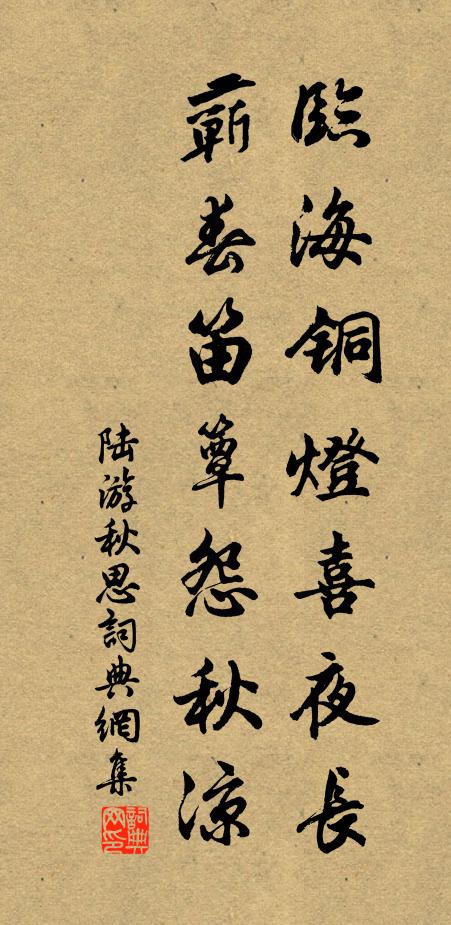 臨海铜燈喜夜長
蘄春笛簟怨秋涼
陆游秋思詞典網集
詞典网印